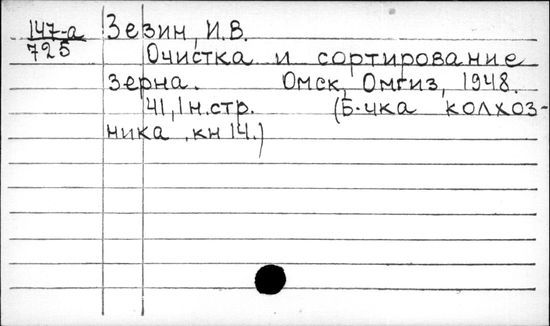 147-а Зезин, И.В.
725
Очистка и сортирование
зерна. Омск, Омгиз, 1948.
41,1 н.стр. (Б-чка колхоз-
ника, кн 14.)